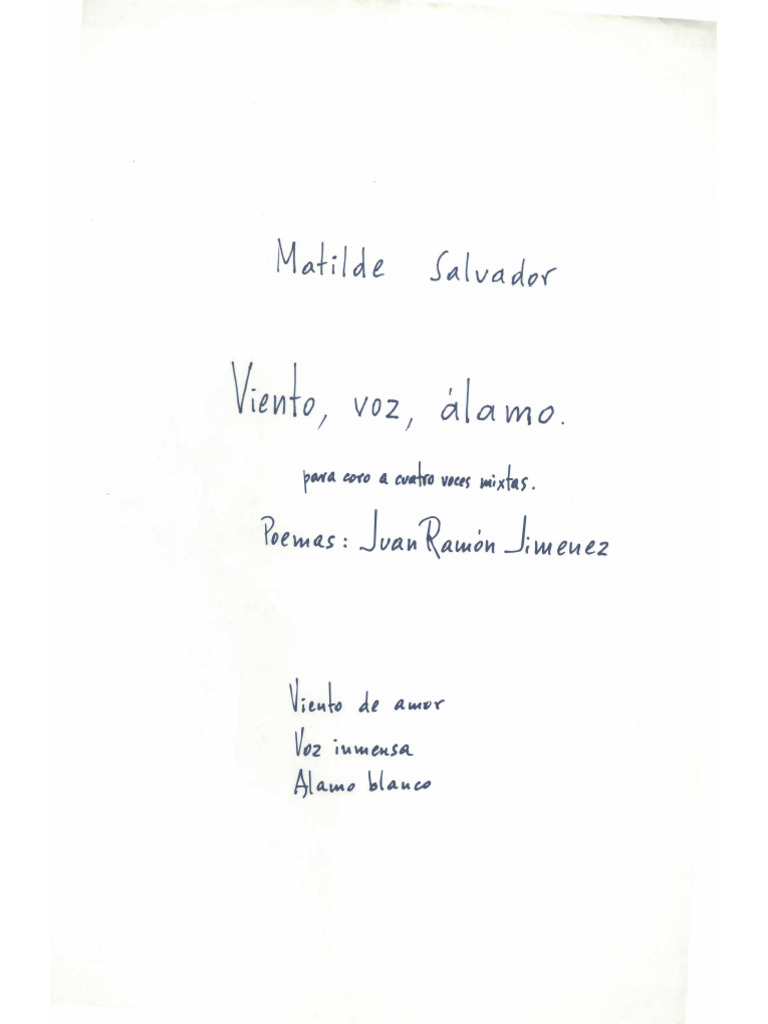 Matilde Salvador
Viento, voz, álamo.
para coro a cuatro voces mixtas.
Poemas: Juan Ramón Jimenez
Viento de amor
Voz inmensa
Alamo blanco